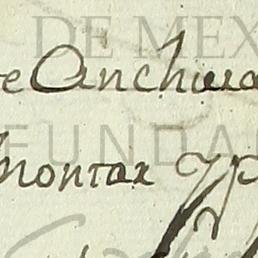 DE MEX
e Anchura
FUNDA
montar y p